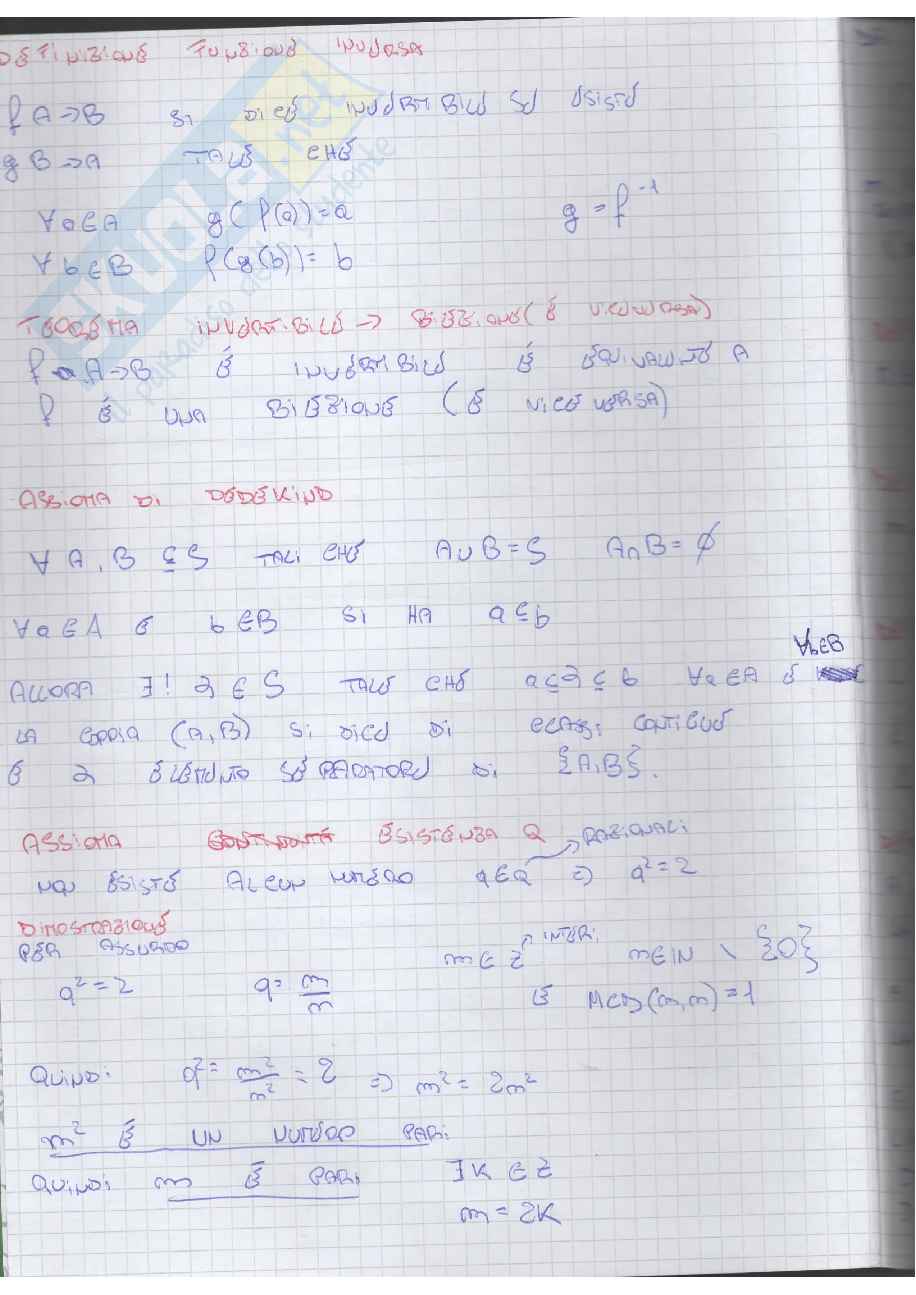 DEFINIZIONE FUNZIONE INVERSA
f A->B SI DICE INVERTIBILE SE ESISTE
g B->A TALE CHE
∀a∈A g(f(a))=a g=f⁻¹
∀b∈B f(g(b))=b
TEOREMA INVERTIBILE -> BIEZIONE (E VICEVERSA)
f A->B È INVERTIBILE È EQUIVALENTE A
f È UNA BIEZIONE (E VICEVERSA)
ASSIOMA DI DEDEKIND
∀ A, B ⊆ S TALI CHE A∪B=S A∩B=∅
∀a∈A E b∈B SI HA a≤b
∀b∈B
ALLORA ∃! ∈ S TALE CHE a≤ ≤ b ∀a∈A E
LA COPPIA (A,B) SI DICE DI CLASSI CONTIGUE
E ELEMENTO SEPARATORE DI {A,B}.
ASSIOMA ESISTENZA Q RAZIONALI
NON ESISTE ALCUN NUMERO q∈Q => q²=2
DIMOSTRAZIONE
PER ASSURDO m∈Z INTERI n∈IN \ {0}
q²=2 q=m/n E MCD(m,n)=1
QUINDI q²=m²/n²=2 => m²=2n²
m² È UN NUMERO PARI
QUINDI m È PARI ∃K∈Z
m=2K
SKUOLA.net
il paradiso dello studente